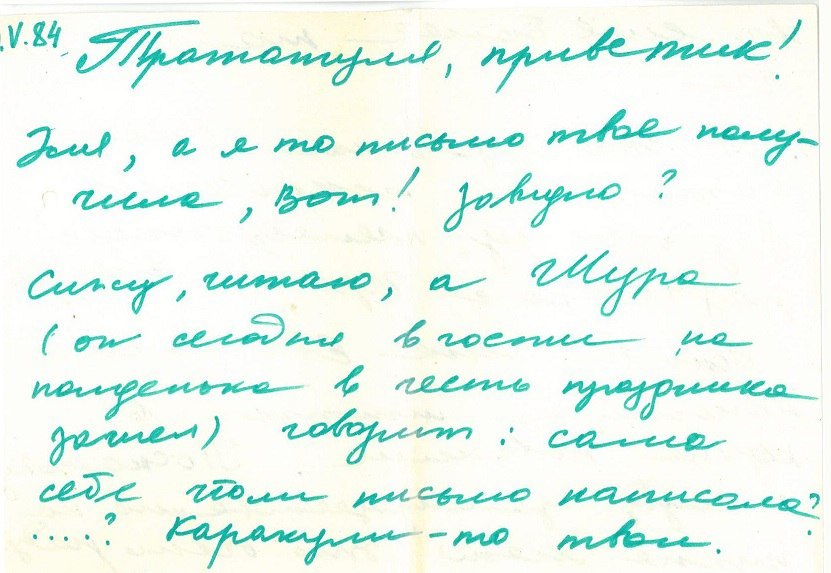 .V.84
Трататуля, приветик!
Эля, а я то письмо твое полу-
чила, вот! Завидно?
Сижу, читаю, а Шура
(он сегодня в гости на
полденька в честь праздника
зашел) говорит: сама
себе чтоли письмо написала?
.....? Каракули-то твои.